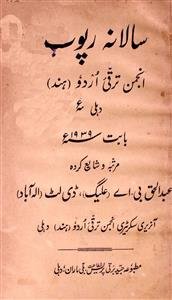 سالانہ رپوٹ
انجمن ترقی اُردو (ہند)
دہلی
بابت ۱۹۳۹ء
مرتبہ و شایع کردہ
عبدالحق بی۔ اے (علیگ)، ڈی لٹ (الہ آباد)
آنریری سکریٹری انجمن ترقی اُردو (ہند) دہلی
مطبوعہ جید برقی پریس دہلی